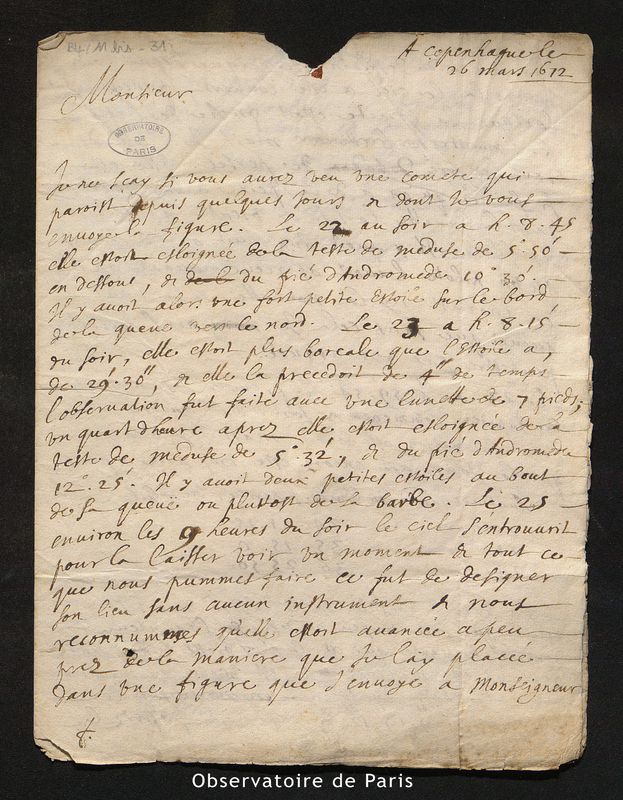 B4/11 bis - 31
A Copenhague le
26 mars 1672
Monsieur
OBSERVATOIRE
DE
PARIS
Je ne scay si vous aurez veu une comete qui
paroist depuis quelques jours & dont je vous
envoye la figure. Le 22 au soir a h. 8. 45
elle estoit esloignée de la teste de meduse de 5° 50'
en dessous, & de la du pié d'Andromede 10° 30'.
Il y avoit alors une fort petite Estoile sur le bord
de la queue vers le nord. Le 23 a h. 8. 15'
du soir, elle estoit plus boreale que l'Estoile a,
de 29'. 30'', & elle la precedoit de 4'' de temps
l'observation fut faite avec une lunette de 7 pieds;
un quart d'heure aprez elle estoit esloignée de la
teste de meduse de 5°. 32', & du pié d'Andromede
12°. 25'. Il y avoit deux petites estoiles au bout
de sa queue ou plustost de la barbe. Le 25
environ les 9 heures du soir le ciel s'entrouvrit
pour la laisser voir un moment & tout ce
que nous pummes faire ce fut de designer
son lieu sans aucun instrument & nous
reconnummes quelle estoit avancée a peu
prez de la maniere que je lay placée
dans une figure que j'envoye a Monseigneur
Observatoire de Paris